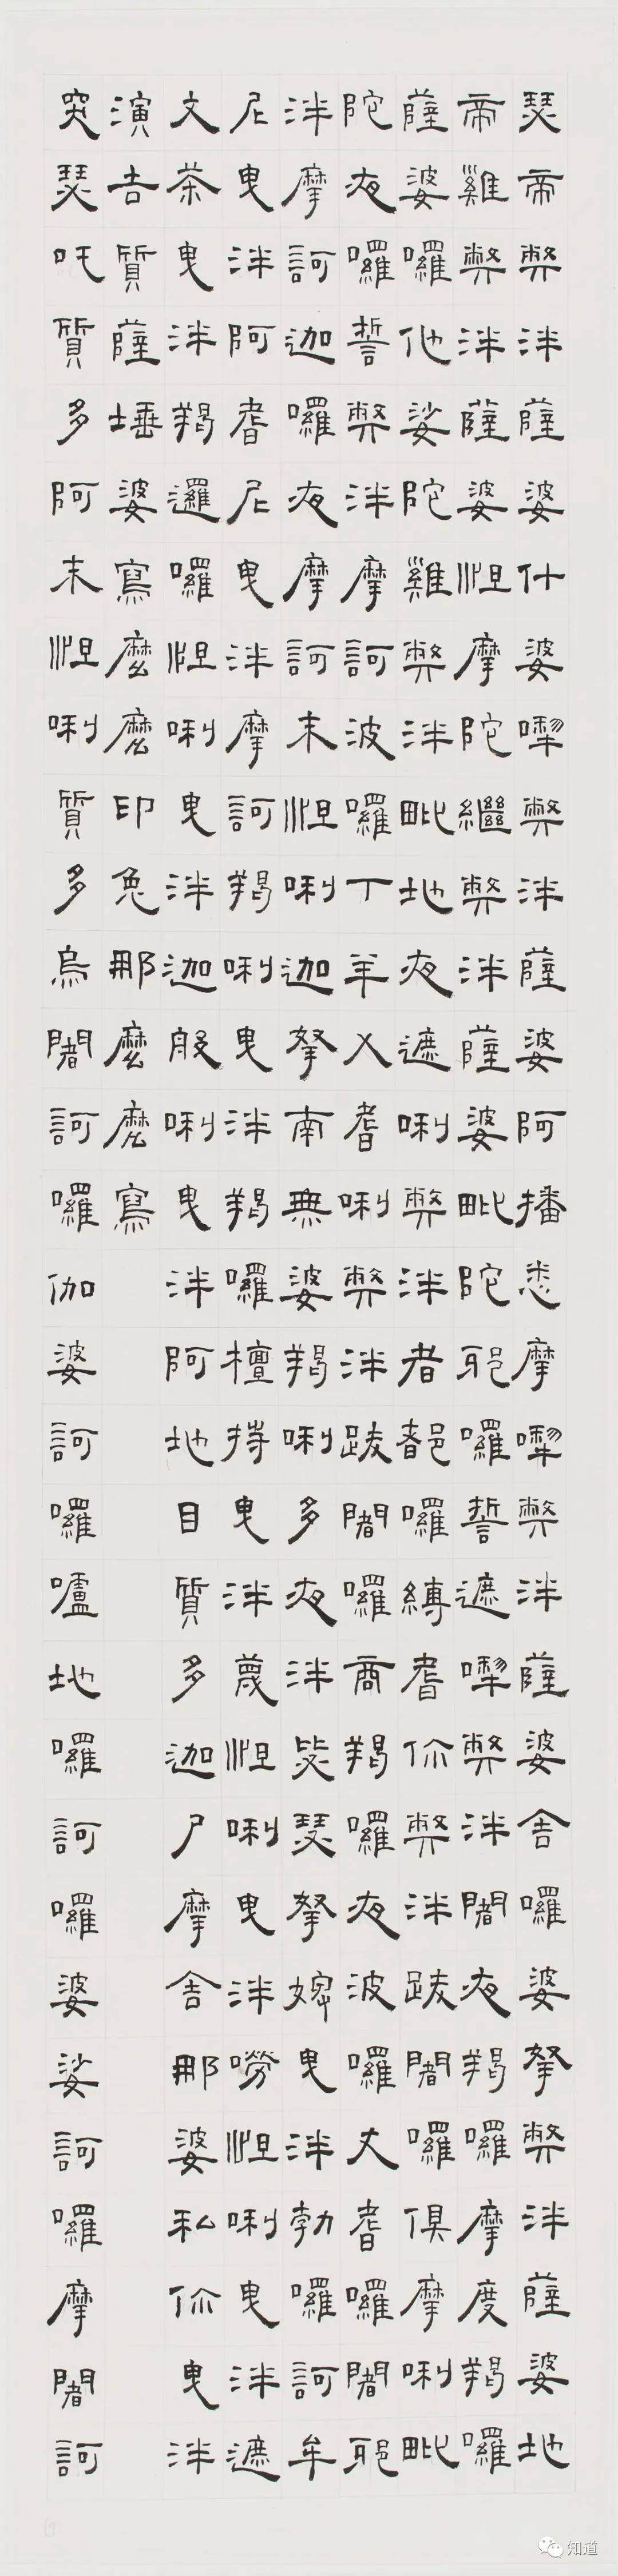 瑟帝弊泮薩婆什婆㗚弊泮薩婆阿播悉摩㗚弊泮薩婆舍囉婆拏弊泮薩婆地
帝雞弊泮薩婆怛摩陀繼弊泮薩婆毗陀耶囉誓遮㗚弊泮闍夜羯囉摩度羯囉
薩婆囉他娑陀雞弊泮毗地夜遮唎弊泮者都囉縛耆你弊泮跋闍囉俱摩唎毗
陀夜囉誓弊泮摩訶波囉丁羊乂耆唎弊泮跋闍囉商羯囉夜波囉丈耆囉闍耶
泮摩訶迦囉夜摩訶末怛唎迦拏南無婆羯唎多夜泮毖瑟拏婢曳泮勃囉訶牟
尼曳泮阿耆尼曳泮摩訶羯唎曳泮羯囉檀持曳泮蔑怛唎曳泮嘮怛唎曳泮遮
文茶曳泮羯邏囉怛唎曳泮迦般唎曳泮阿地目質多迦尸摩舍那婆私你曳泮
演吉質薩埵婆寫麼麼印兔那麼麼寫
突瑟吒質多阿末怛唎質多烏闍訶囉伽婆訶囉嚧地囉訶囉婆娑訶囉摩闍訶
知道